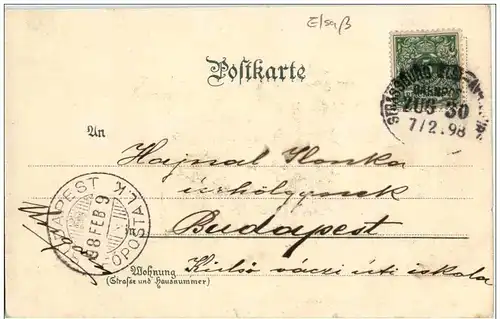 Elsaß
Postkarte
STRASSBURG ELS
BAHNPOST
ZUG 30
7/2.98
An
Hajnal Ilonka
úrhölgynek
in Budapest
BUDAPEST
98 FEB 9
FOPOSTA L.K.
Wohnung
(Straße und Hausnummer)
Külső váczi úti iskola